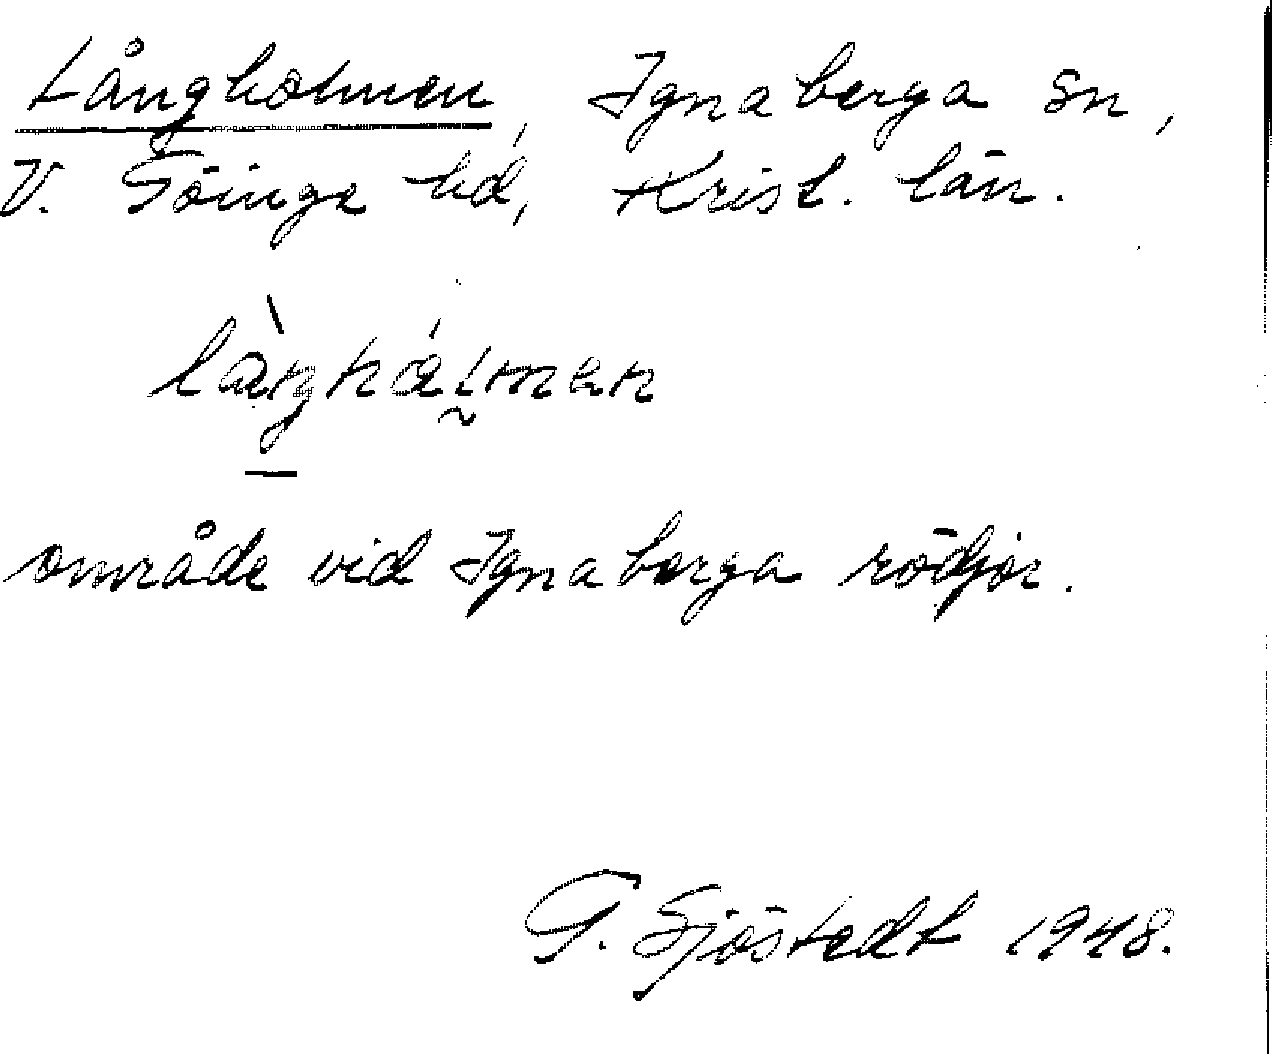 Långholmen, Ignaberga sn,
V. Göinge hd, Krist. län.
område vid Ignaberga rödjor.
G. Sjöstedt 1948.